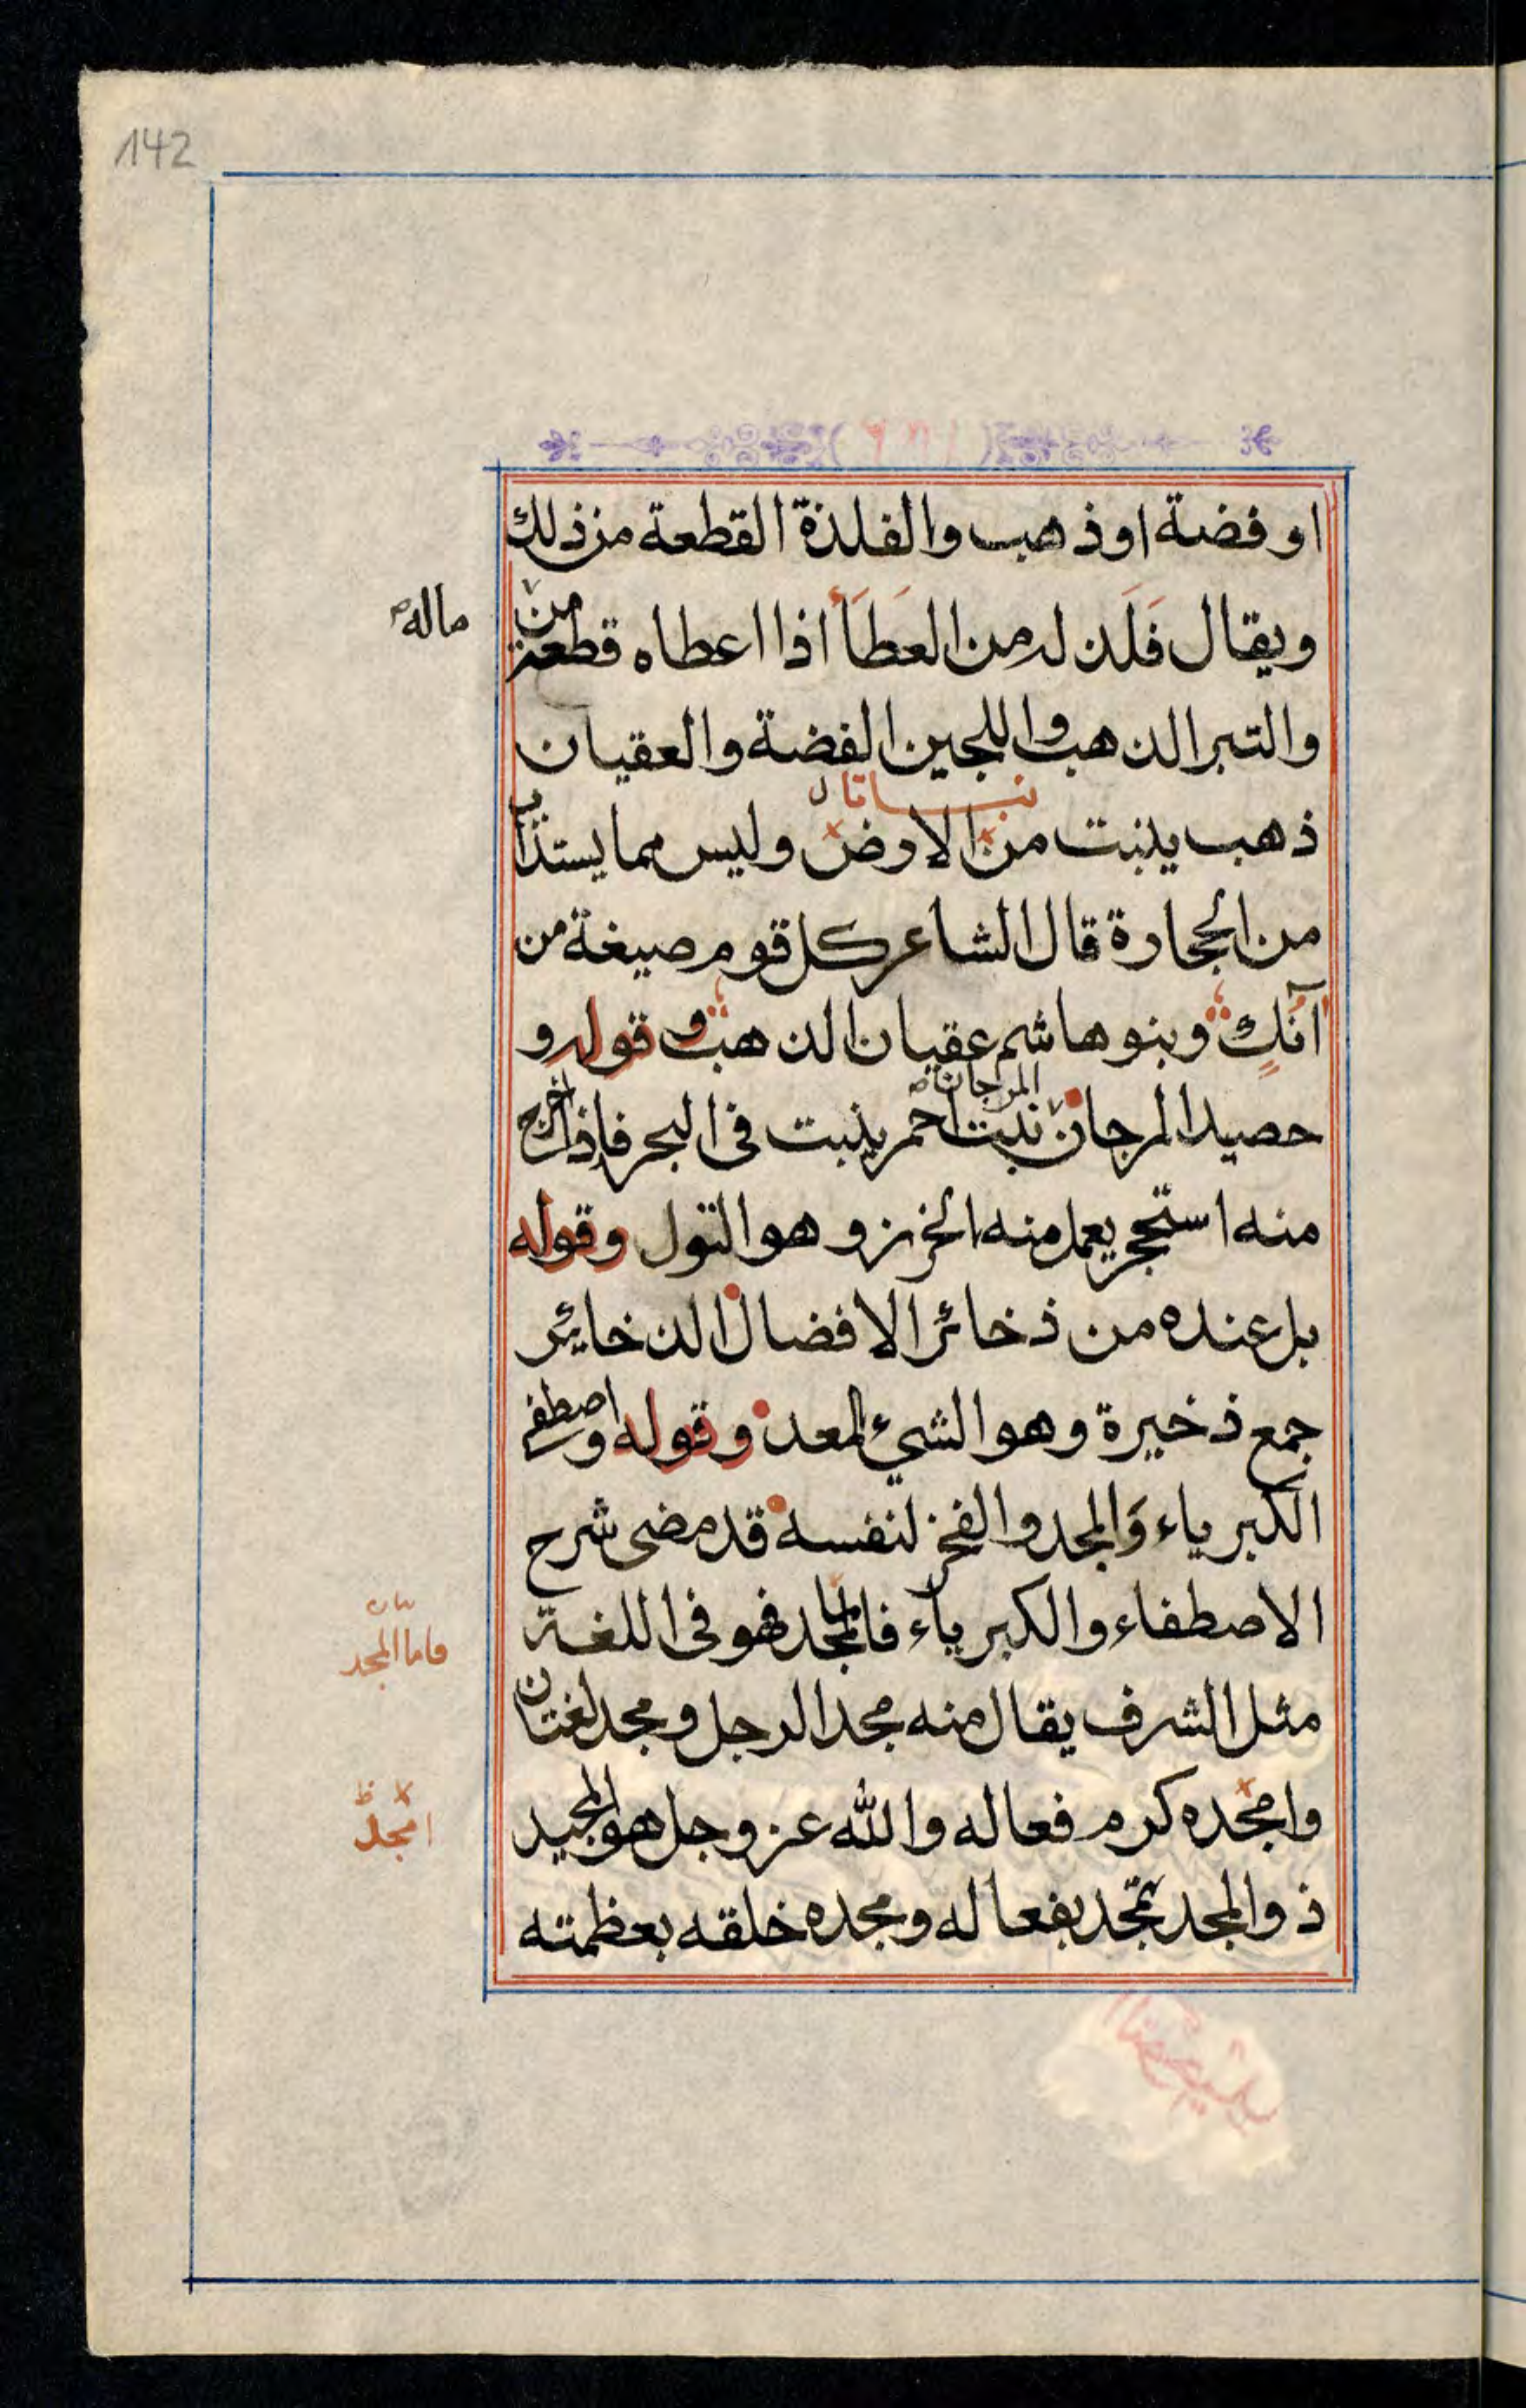 142
او فضة او ذهب والفلذة القطعة من ذلك
ويقال فَلَذ له من العَطَاء اذا اعطاه قطعة من
ماله
والتبر الذهب واللجين الفضة والعقيان
نباتا
ذهب ينبت من الارض وليس مما يستذاب
من الحجارة قال الشاعر كل قوم صيغة من
آنُكٍ وبنو هاشم عقيان الذهب وقوله و
المرجان
حصيد المرجان نبت احمر ينبت فى البحر فاذا اخرج
منه استحجر يعمل منه الخرز وهو التول وقوله
بل عنده من ذخائر الافضال الذخاير
جمع ذخيرة وهو الشيء المعد وقوله واصطفى
الكبرياء وَالمجد والفخر لنفسه قد مضى شرح
الاصطفاء والكبرياء فالمجد فهو فى اللغة
بيان
فاما المجد
مثل الشرف يقال منه مجد الرجل ومجد لغتان
وامجّده كرم فعاله والله عز وجل هو المجيد
ظ
امجّد
ذو المجد تمجّد بفعاله ومجده خلقه بعظمته